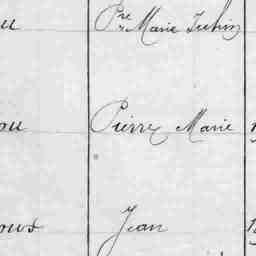 u Pre Marie
ou Pierre Marie
ous Jean